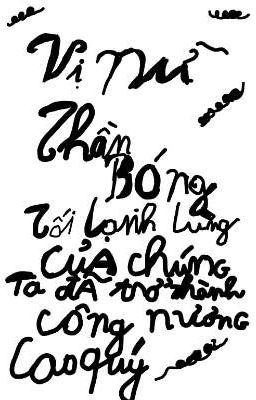 Vị nữ
Thần
Bóng
Tối Lạnh Lùng
CỦA chúng
Ta đã trở thành
công nương
Cao quý